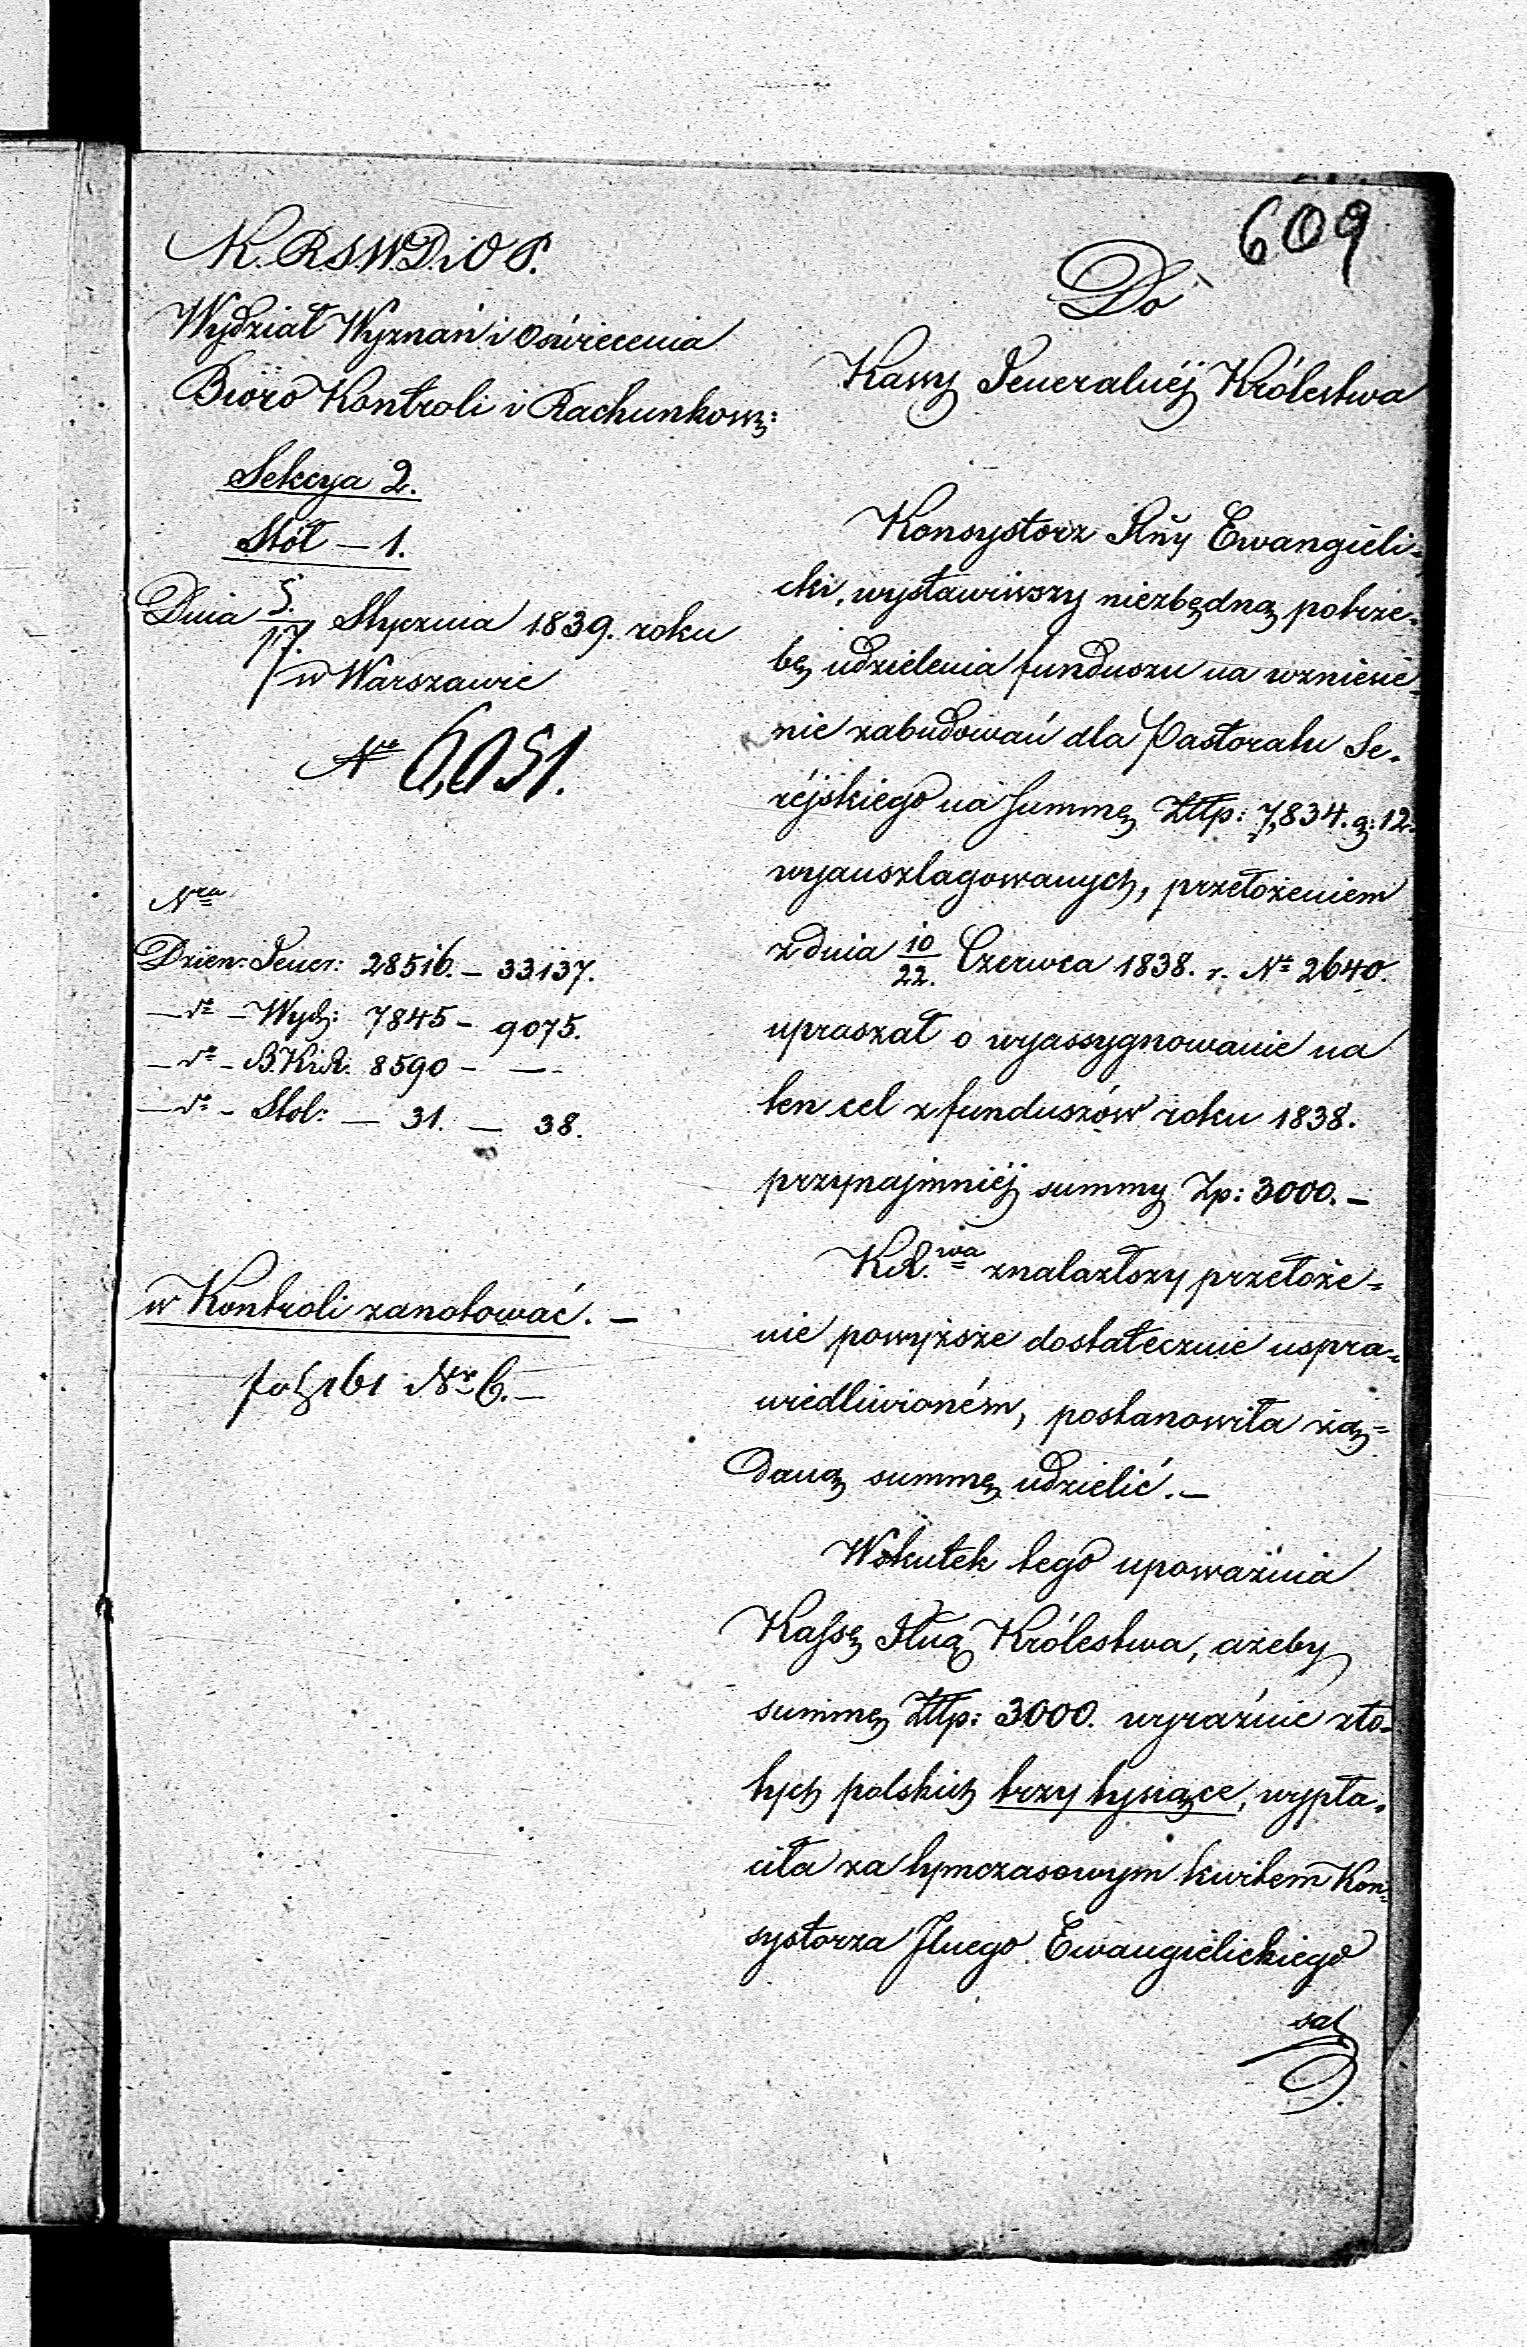 609
K.R.S.W.D.iO.P.
Wydział Wyznań i Oświecenia
Bióro Kontroli i Rachunkow:
Sekcya 2.
Stół — 1.
Dnia 5./17. Stycznia 1839. roku
w Warszawie
No 6,051.
Nra
Dzien: Gener: 28516. — 33137.
— do — Wydz: 7845 — 9075.
— do — B.KiR. 8590 — —
— do — Stol: — 31. — 38.
w Kontroli zanotować. —
161 Nr 6. —
Do
Kassy Generalnéj Królestwa
Konsystorz Glny Ewangieli-
cki, wystawiwszy niezbędną potrze-
bę udzielenia funduszu na wzniesie-
nie zabudowań dla Pastoratu Se-
réjskiego na summę Złtp: 7,834. g: 12.
wyauszlagowanych, przełożeniem
z dnia 10/22. Czerwca 1838. r. No 2640.
upraszał o wyassygnowanie na
ten cel z funduszów roku 1838.
przynajmniéj summy Zp: 3000. —
K.R.wa znalazłszy przełoże-
nie powyższe dostatecznie uspra-
wiedliwioném, postanowiła żą-
daną summę udzielić. —
Wskutek tego upoważnia
Kassę Glną Królestwa, ażeby
summę Złtp: 3000. wyraźnie zło-
tych polskich trzy tysiące, wypła-
ciła za tymczasowym kwitem Kon-
systorza Glnego Ewangielickiego